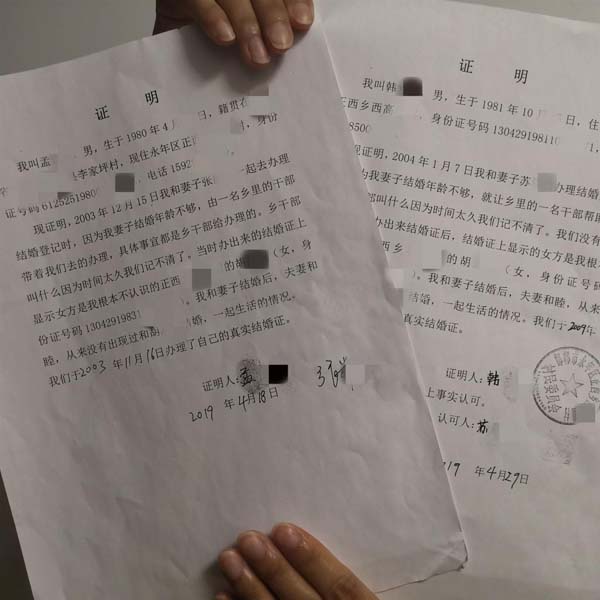 证 明
我叫孟 男，生于1980年4 日，籍贯在
李家坪村，现住永年区正 村，身份
证号码6125251980 ，电话1592
现证明，2003年12月15日我和妻子张 一起去办理
结婚登记时，因为我妻子结婚年龄不够，由一名乡里的干部
带着我们去的办理，具体事宜都是乡干部给办理的。乡干部
叫什么因为时间太久我们记不清了。当时办出来的结婚证上
显示女方是我根本不认识的正西 的 （女，身
份证号码1304291983 ）。我和妻子结婚后，夫妻和
睦，从来没有出现过和胡 婚，一起生活的情况。
我们于2003年11月16日办理了自己的真实结婚证。
证明人：孟
2019年4月18日
证 明
我叫韩 男，生于1981年10 日，住
正西乡西高 ，身份证号码13042919811
8500
现证明，2004年1月7日我和妻子苏 办理结婚
为我妻子结婚年龄不够，就让乡里的一名干部帮
部叫什么因为时间太久我们记不清了。我们没有
办出来结婚证后，结婚证上显示的女方是我根
西乡 的胡 （女，身份证号码
）。我和妻子结婚后，夫妻和睦，从
结婚，一起生活的情况。我们于2009年
真实结婚证。
证明人：韩
上事实认可。
认可人：苏
19年4月29日
村民委员会